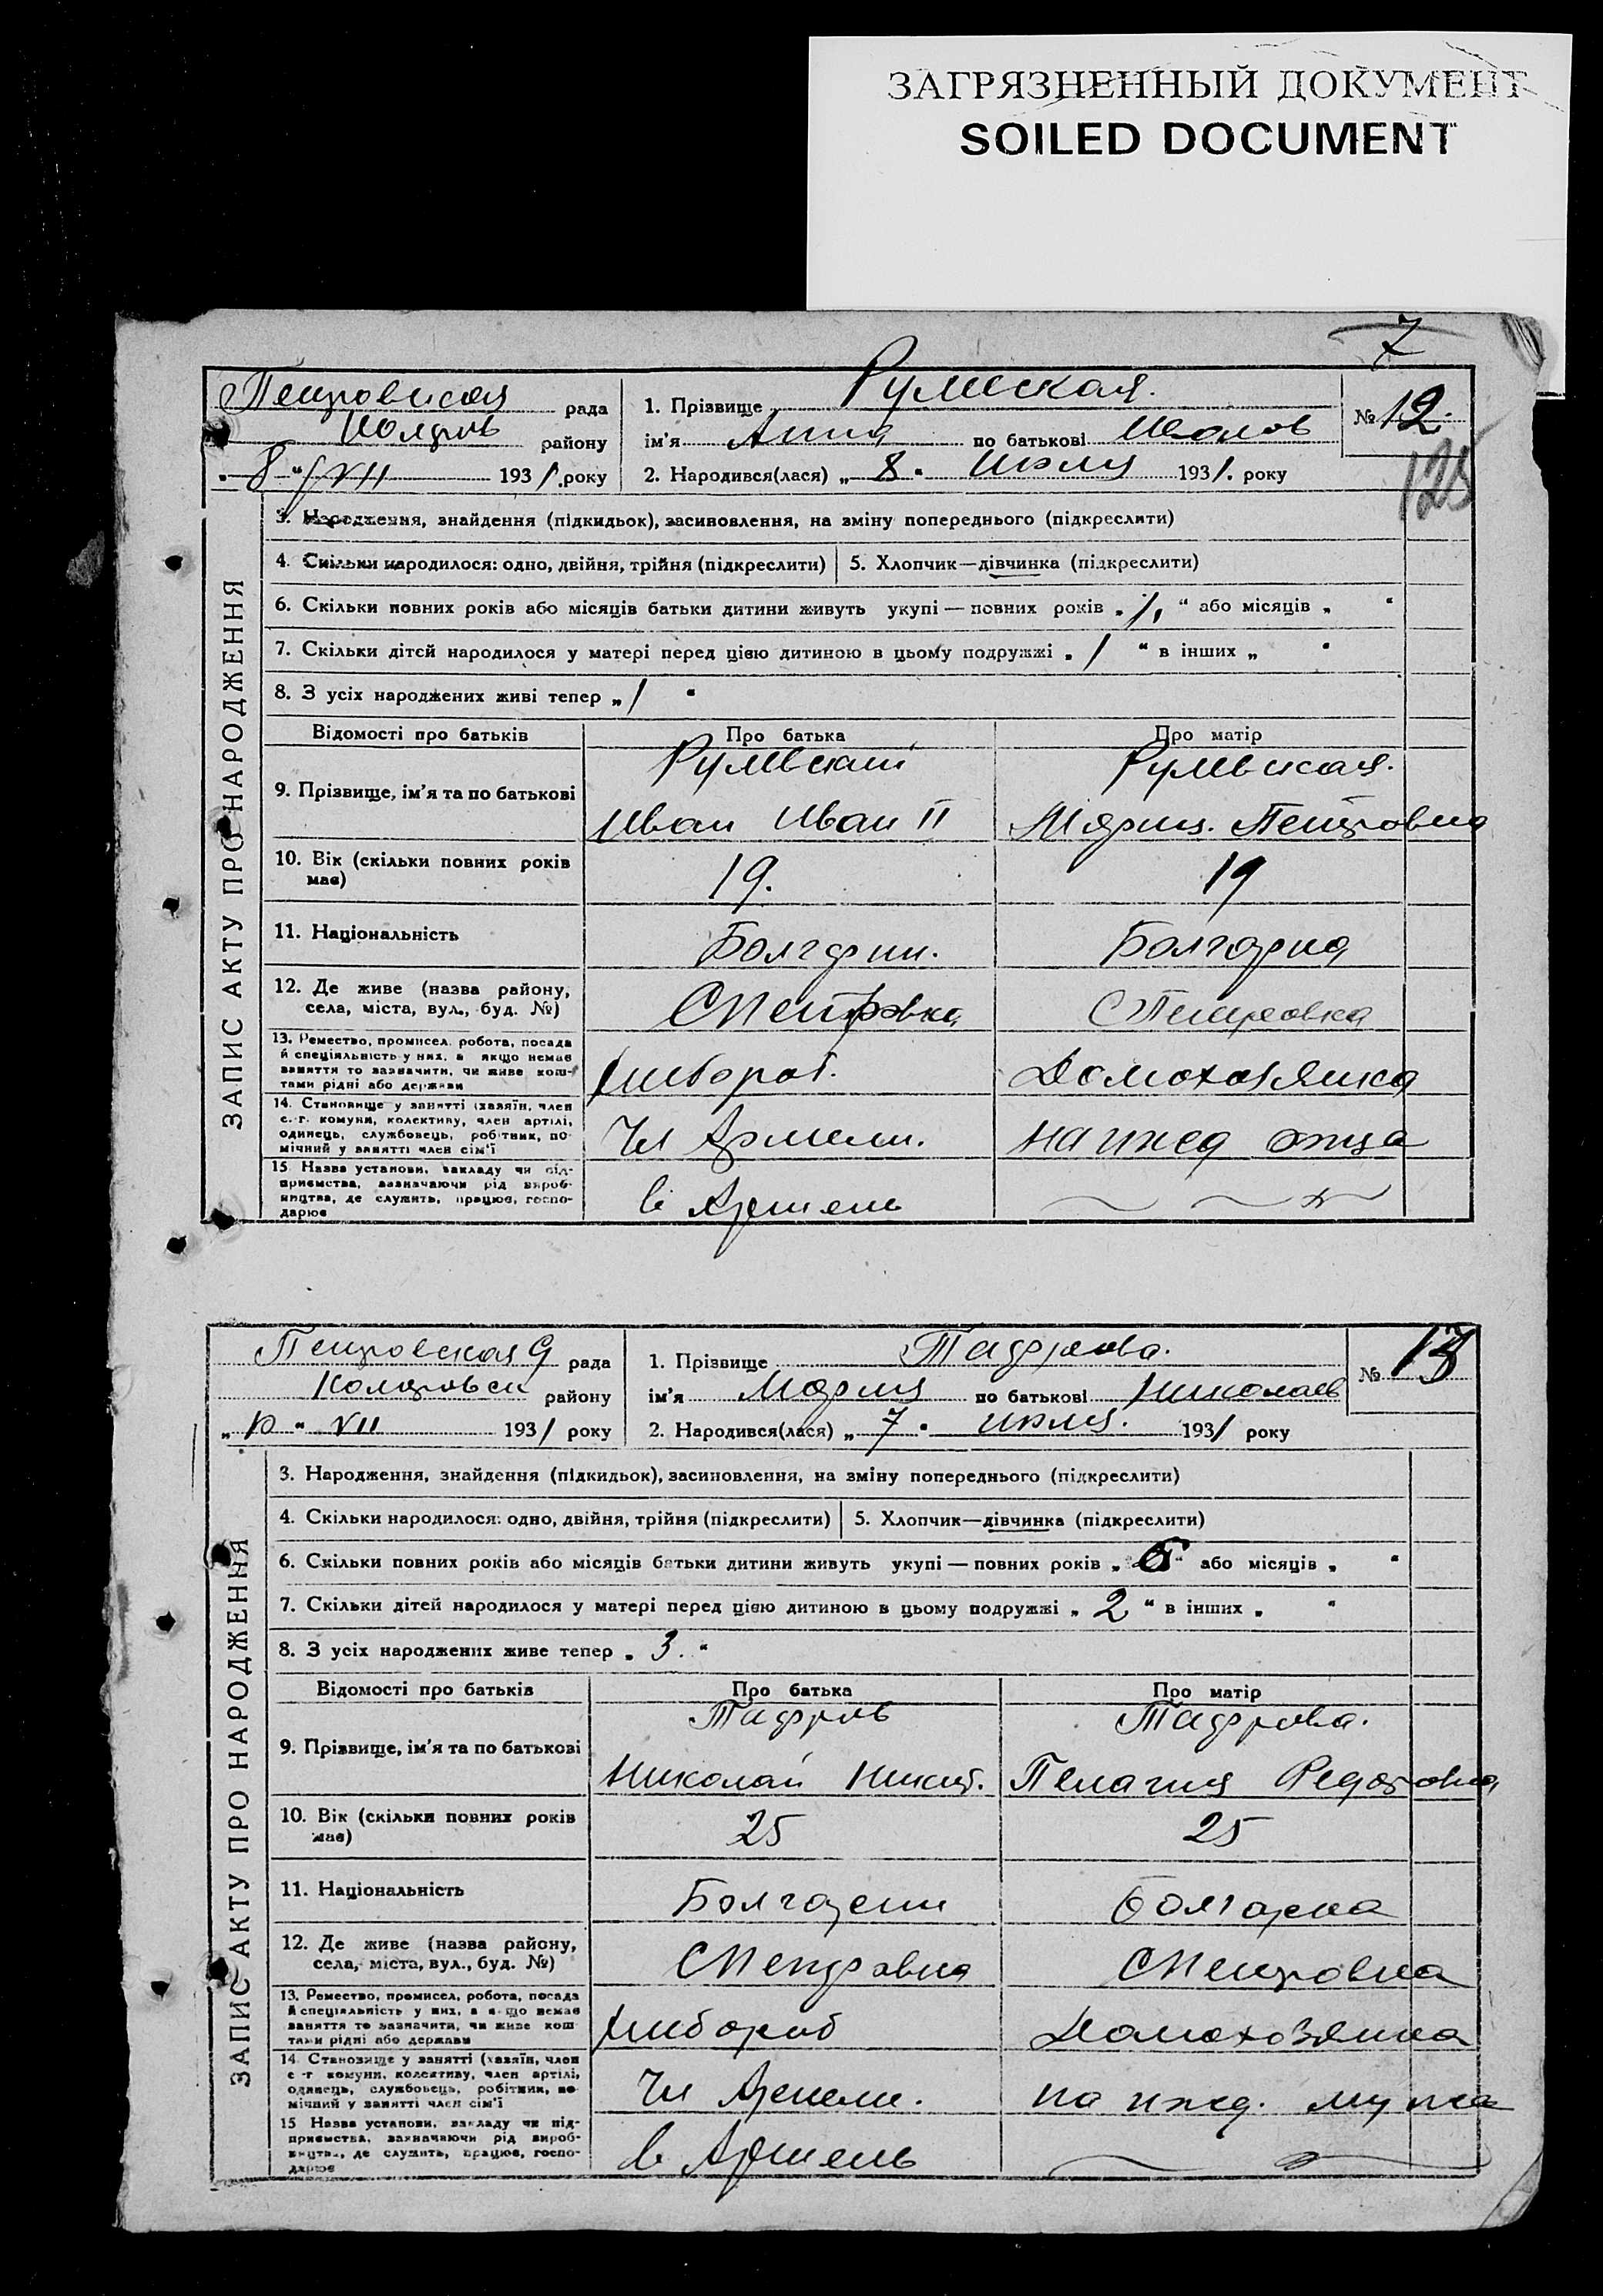 ЗАГРЯЗНЕННЫЙ ДОКУМЕНТ
SOILED DOCUMENT
7
ЗАПИС АКТУ ПРО НАРОДЖЕННЯ
Петровская рада
району
"8" VII 1931 року
1. Прізвище
№ 12.
125
ім'я Анна по батькові
2. Народився(лася) „8" Июля 1931. року
3. Народження, знайдення (підкидьок), засиновлення, на зміну попереднього (підкреслити)
4. Скільки народилося: одно, двійня, трійня (підкреслити) 5. Хлопчик—дівчинка (підкреслити)
6. Скільки повних років або місяців батьки дитини живуть укупі — повних років „1" або місяців „ "
7. Скільки дітей народилося у матері перед цією дитиною в цьому подружжі „1" в інших „ "
8. З усіх народжених живі тепер „1"
Відомості про батьків Про батька Про матір
9. Прізвище, ім'я та по батькові
Иван Иван Мария. Петровна
10. Вік (скільки повних років має) 19. 19
11. Національність Болгарин. Болгарка
12. Де живе (назва району, села, міста, вул., буд. №) С Петровка С Петровка
13. Ремество, промисел, робота, посада й спеціяльність у них, а якщо немає заняття то зазначити, чи живе коштами рідні або держави
Хлебороб. Домохозяйка
14. Становище у занятті (хазяїн, член с.-г. комуни, колективу, член артілі, одинець, службовець, робітник, помічний у занятті член сім'ї
Чл Артели. на ижд отца
15. Назва установи, закладу чи підприємства, зазначаючи рід виробництва, де служить, працює, господарює
в Артель
ЗАПИС АКТУ ПРО НАРОДЖЕННЯ
Петровская рада
району
„10" VII 1931 року
1. Прізвище
№ 13
ім'я Мария по батькові Николаев
2. Народився(лася) „7" июля. 1931 року
3. Народження, знайдення (підкидьок), засиновлення, на зміну попереднього (підкреслити)
4. Скільки народилося: одно, двійня, трійня (підкреслити) 5. Хлопчик—дівчинка (підкреслити)
6. Скільки повних років або місяців батьки дитини живуть укупі — повних років „ " або місяців „ "
7. Скільки дітей народилося у матері перед цією дитиною в цьому подружжі „2" в інших „ "
8. З усіх народжених живе тепер „3."
Відомості про батьків Про батька Про матір
9. Прізвище, ім'я та по батькові
Николай Никит. Пелагия Федотовна
10. Вік (скільки повних років має) 25 25
11. Національність Болгарин Болгарка
12. Де живе (назва району, села, міста, вул., буд. №) С Петровка С Петровка
13. Ремество, промисел, робота, посада й спеціяльність у них, а якщо немає заняття то зазначити, чи живе коштами рідні або держави
Хлебороб Домохозяйка
14. Становище у занятті (хазяїн, член с.-г. комуни, колективу, член артілі, одинець, службовець, робітник, помічний у занятті член сім'ї
Чл Артели. на ижд. мужа
15. Назва установи, закладу чи підприємства, зазначаючи рід виробництва, де служить, працює, господарює
в Артель